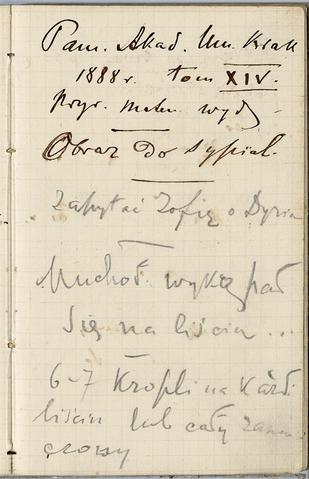 Pam. Akad. Um. Krak
1888 r. tom XIV.
Przyr. matem. wydz
Obraz do sypial.
Zapytać Zofię o Dyzia
Muchoł. wykąpał
się na liściu ...
6-7 Kropli na Każdi
liściu lub cały zanu